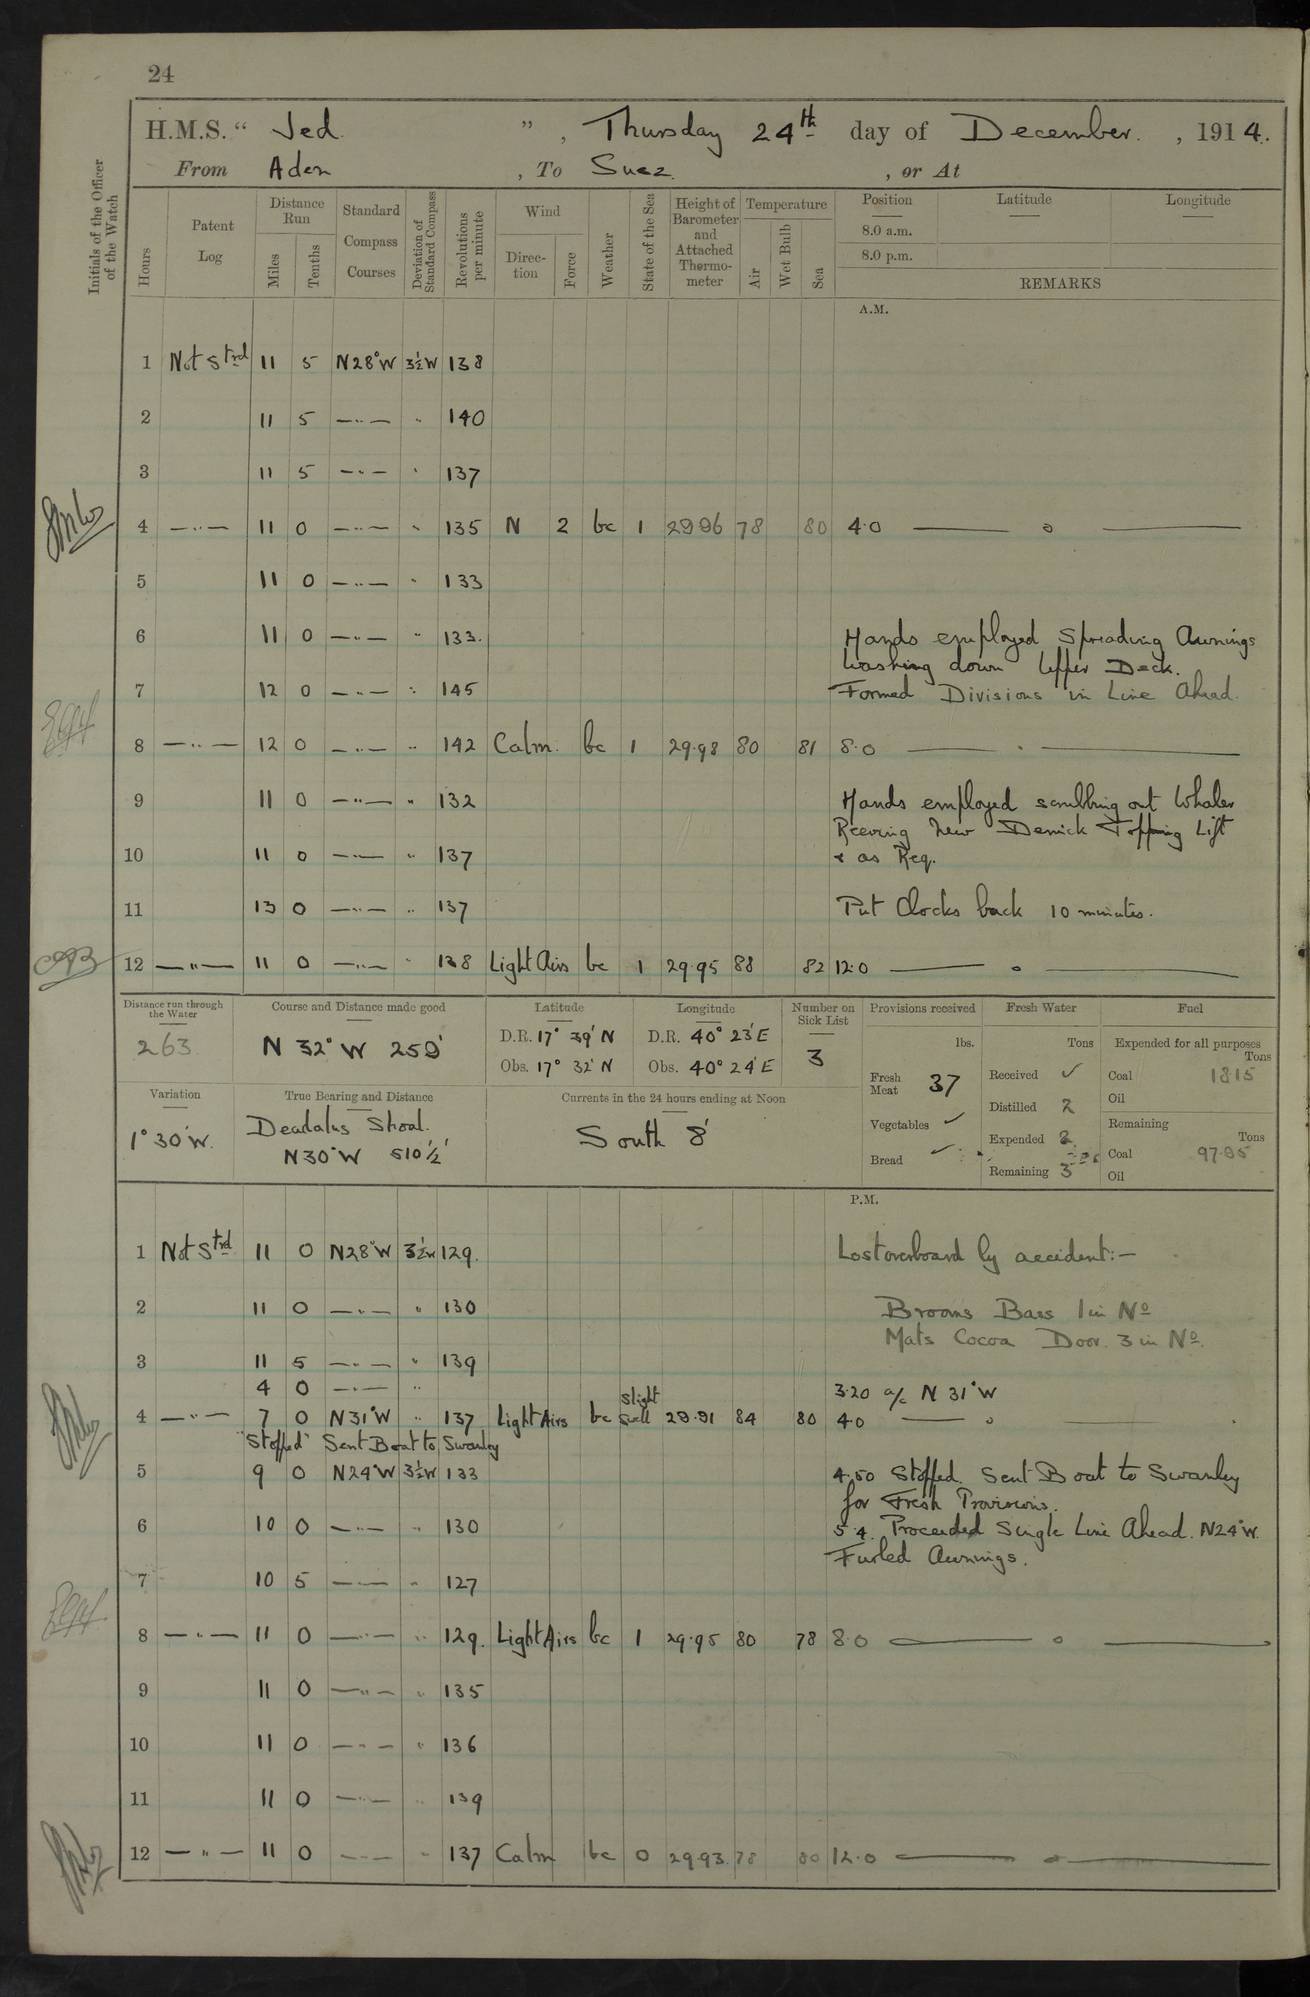 24
H.M.S. " Jed. " , Thursday 24th day of December. , 1914.
From Aden , To Suez. , or At
Initials of the Officer of the Watch
Hours
Patent Log
Distance Run
Miles
Tenths
Standard Compass Courses
Deviation of Standard Compass
Revolutions per minute
Wind
Direction
Force
Weather
State of the Sea
Height of Barometer and Attached Thermometer
Temperature
Air
Wet Bulb
Sea
Position Latitude Longitude
8.0 a.m.
8.0 p.m.
REMARKS
A.M.
1 Not Strd 11 5 N28°W 3½W 138
2 11 5 —"— " 140
3 11 5 —"— " 137
4 —"— 11 0 —"— " 135 N 2 bc 1 29.96 78 80 4.0 —— o ——
5 11 0 —"— " 133
6 11 0 —"— " 133. Hands employed Spreading Awnings
washing down Upper Deck.
7 12 0 —"— " 145 Formed Divisions in Line Ahead.
8 —"— 12 0 —"— " 142 Calm. bc 1 29.98 80 81 8.0 —— . ——
9 11 0 —"— " 132 Hands employed scrubbing out Whaler
Reeving New Derrick Topping Lift
10 11 0 —"— " 137 & as Req.
11 13 0 —"— " 137 Put Clocks back 10 minutes.
12 —"— 11 0 —"— " 138 Light Airs bc 1 29.95 88 82 12.0 —— o ——
Distance run through the Water
263
Course and Distance made good
N 32° W 259'
Latitude
D.R. 17° 39' N
Obs. 17° 32' N
Longitude
D.R. 40° 23' E
Obs. 40° 24' E
Number on Sick List
3
Provisions received
lbs.
Fresh Meat 37
Vegetables ✓
Bread ✓
Fresh Water
Tons
Received ✓
Distilled 2
Expended 2
Remaining 3
Fuel
Expended for all purposes
Tons
Coal 18.15
Oil
Remaining
Tons
Coal 97.85
Oil
Variation
1° 30' W.
True Bearing and Distance
Deadalus Shoal.
N30°W 510½'
Currents in the 24 hours ending at Noon
South 8'
P.M.
1 Not Strd 11 0 N28°W 3½W 129. Lost overboard by accident:—
2 11 0 —"— " 130 Brooms Bass 1 in No
Mats Cocoa Door. 3 in No.
3 11 5 —"— " 139
4 0 —"— " 3.20 a/c N 31°W
4 —"— 7 0 N31°W " 137 Light Airs bc Slight Swell 29.91 84 80 4.0 —— o ——
"Stopped" Sent Boat to Swanley
5 9 0 N24°W 3½W 133 4.50 Stopped. Sent Boat to Swanley
for Fresh Provisions.
6 10 0 —"— " 130 5.4. Proceeded Single Line Ahead. N24°W.
Furled Awnings.
7 10 5 —"— " 127
8 —"— 11 0 —"— " 129. Light Airs bc 1 29.95 80 78 8.0 —— o ——
9 11 0 —"— " 135
10 11 0 —"— " 136
11 11 0 —"— " 139
12 —"— 11 0 —"— " 137 Calm bc 0 29.93. 78 80 12.0 —— o ——